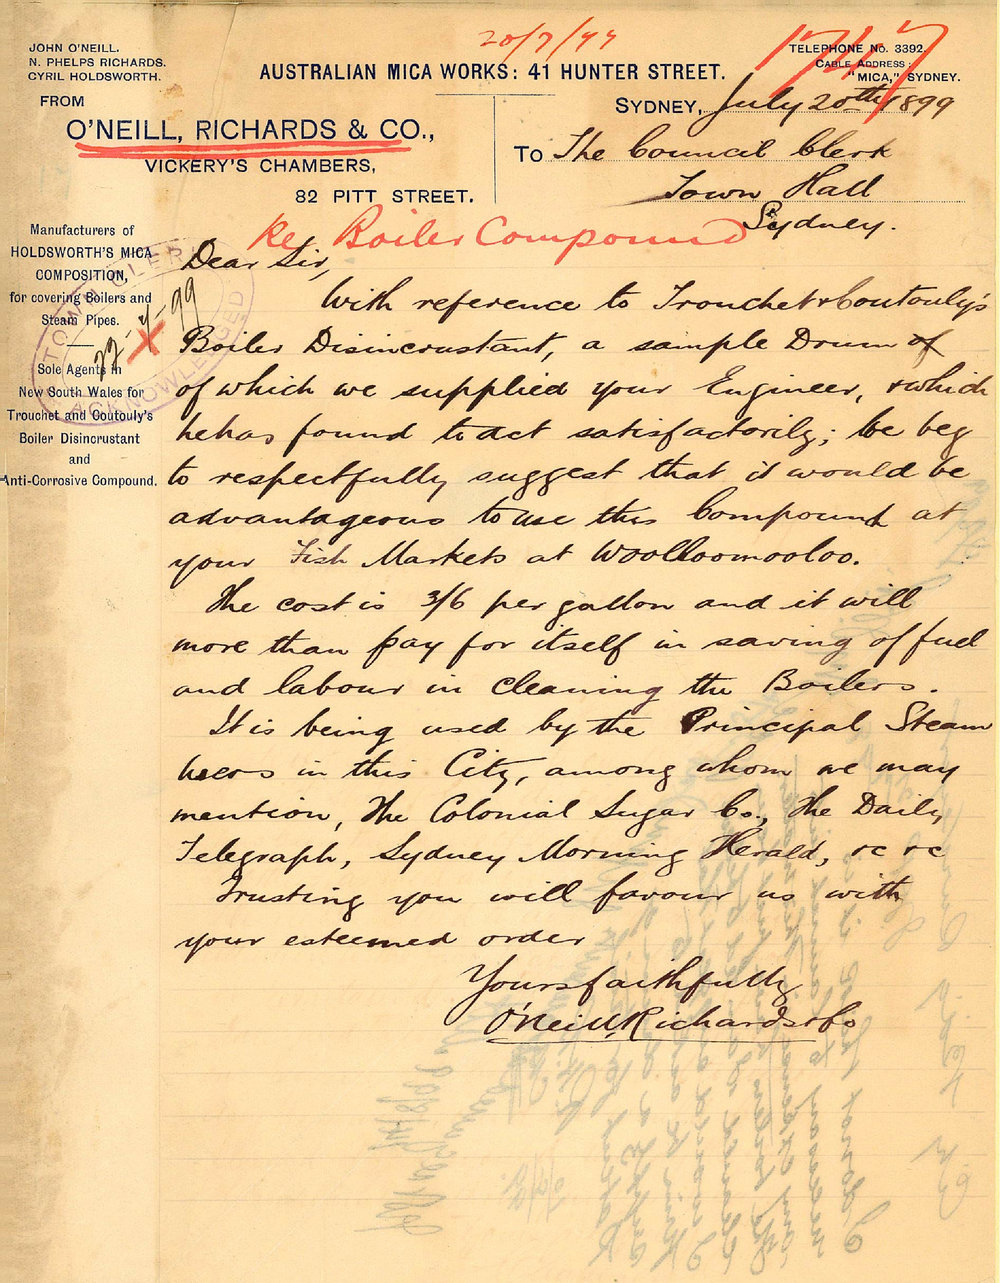 20/7/99
1747
JOHN O'NEILL.
N. PHELPS RICHARDS.
CYRIL HOLDSWORTH.
TELEPHONE No. 3392.
CABLE ADDRESS:
"MICA," SYDNEY.
AUSTRALIAN MICA WORKS: 41 HUNTER STREET.
FROM
O'NEILL, RICHARDS & CO.,
VICKERY'S CHAMBERS,
82 PITT STREET.
SYDNEY, July 20th 1899
To The Council Clerk
Town Hall
Sydney.
Re Boiler Compound
Manufacturers of
HOLDSWORTH'S MICA
COMPOSITION,
for covering Boilers and
Steam Pipes.
Sole Agents in
New South Wales for
Trouchet and Coutouly's
Boiler Disincrustant
and
Anti-Corrosive Compound.
TOWN CLERK
22-7-99
ACKNOWLEDGED
Dear Sir,
With reference to Trouchet & Coutouly's
Boiler Disincrustant, a sample Drum of
of which we supplied your Engineer, & which
he has found to act satisfactorily; we beg
to respectfully suggest that it would be
advantageous to use this Compound at
your Fish Markets at Woolloomooloo.
The cost is 3/6 per gallon and it will
more than pay for itself in saving of fuel
and labour in cleaning the Boilers.
It is being used by the Principal Steam
users in this City, among whom we may
mention, The Colonial Sugar Co., The Daily
Telegraph, Sydney Morning Herald, &c &c
Trusting you will favour us with
your esteemed order
Yours faithfully
O'Neill, Richards & Co